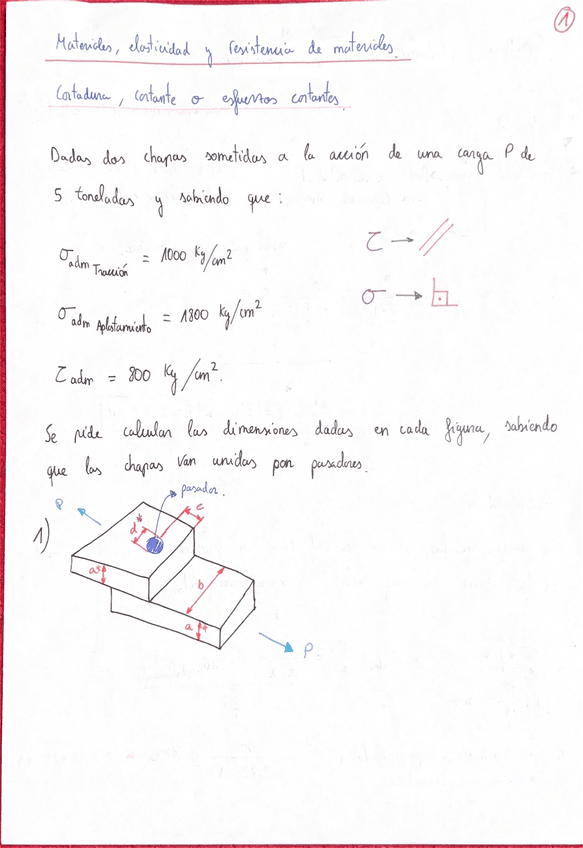 1
Materiales, elasticidad y resistencia de materiales.
Cortadura, cortante o esfuerzos cortantes.
Dadas dos chapas sometidas a la acción de una carga P de
5 toneladas y sabiendo que:
σadm Tracción = 1000 Kg/cm²
τ → //
σadm Aplastamiento = 1800 Kg/cm²
σ →
τadm = 800 Kg/cm².
Se pide calcular las dimensiones dadas en cada figura, sabiendo
que las chapas van unidas por pasadores.
1)
P
pasador.
c
d*
a*
b
a*
P.